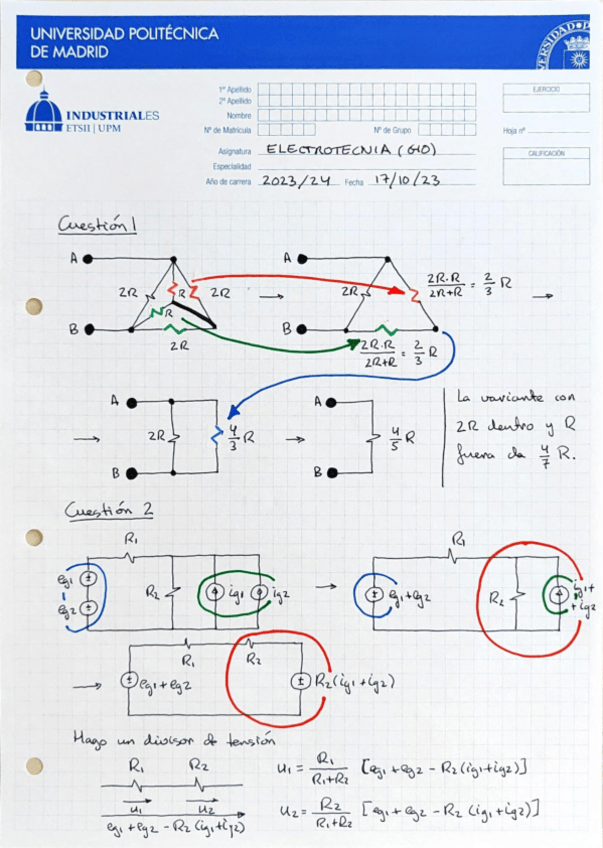 UNIVERSIDAD POLITÉCNICA
DE MADRID
INDUSTRIALES
ETSII | UPM
1º Apellido
2º Apellido
Nombre
Nº de Matrícula
Nº de Grupo
Asignatura ELECTROTECNIA (GIO)
Especialidad
Año de carrera 2023/24 Fecha 17/10/23
EJERCICIO
Hoja nº
CALIFICACIÓN
Cuestión 1
A
2R
R
2R
R
B
2R
A
2R
2R·R/2R+R = 2/3 R
B
2R·R/2R+R = 2/3 R
A
2R
4/3 R
B
A
4/5 R
B
La variante con
2R dentro y R
fuera da 4/7 R.
Cuestión 2
R1
eg1
eg2
R2
ig1
ig2
R1
eg1+eg2
R2
ig1+
+ig2
R1
R2
eg1+eg2
R2(ig1+ig2)
Hago un divisor de tensión
R1 R2
u1 u2
eg1+eg2 - R2(ig1+ig2)
u1 = R1/R1+R2 [eg1+eg2 - R2(ig1+ig2)]
u2 = R2/R1+R2 [eg1+eg2 - R2(ig1+ig2)]